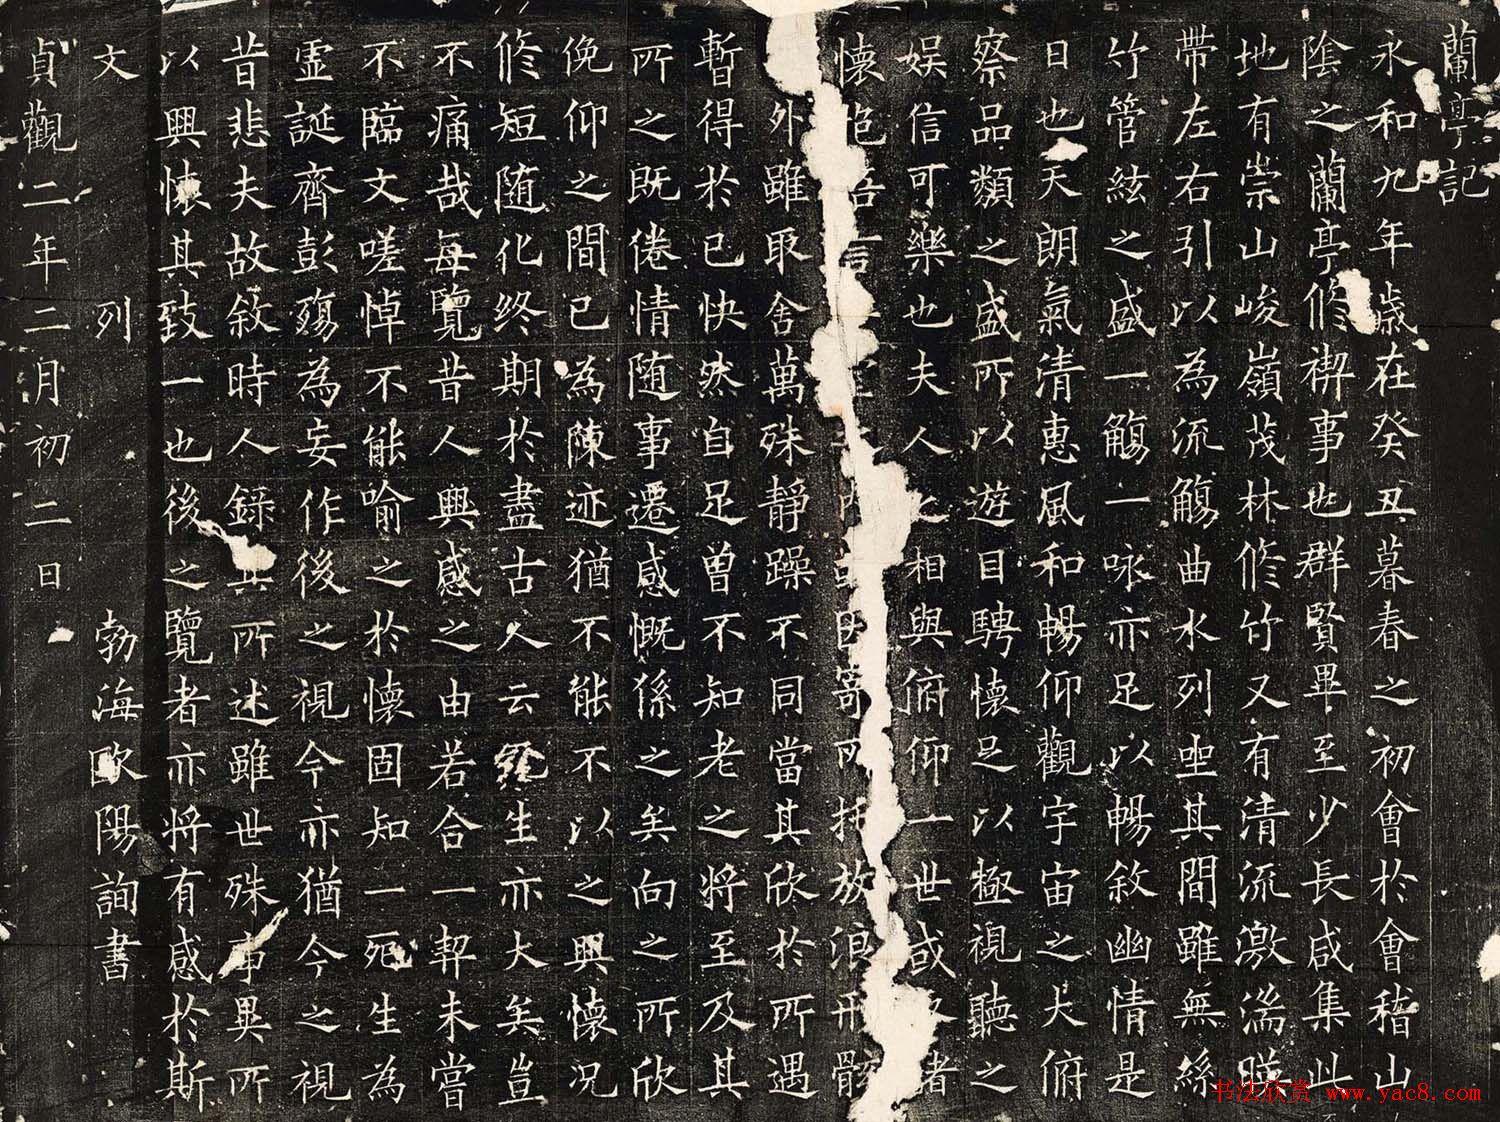 蘭亭記
永和九年歲在癸丑暮春之初會於會稽山
陰之蘭亭修禊事也群賢畢至少長咸集此
地有崇山峻嶺茂林修竹又有清流激湍暎
帶左右引以為流觴曲水列坐其間雖無絲
竹管絃之盛一觴一咏亦足以暢敘幽情是
日也天朗氣清惠風和暢仰觀宇宙之大俯
察品類之盛所以遊目騁懷足以極視聽之
娛信可樂也夫人之相與俯仰一世或取諸
懷抱悟言因寄所托放浪形骸
外雖取舍萬殊靜躁不同當其欣於所遇
暫得於已快然自足曾不知老之將至及其
所之既倦情隨事遷感慨係之矣向之所欣
俛仰之間已為陳迹猶不能不以之興懷況
修短隨化終期於盡古人云死生亦大矣豈
不痛哉每覽昔人興感之由若合一契未嘗
不臨文嗟悼不能喻之於懷固知一死生為
虛誕齊彭殤為妄作後之視今亦猶今之視
昔悲夫故敘時人錄其所述雖世殊事異所
以興懷其致一也後之覽者亦將有感於斯
文 列 勃海歐陽詢書
貞觀二年二月初二日
书法欣赏 www.yac8.com